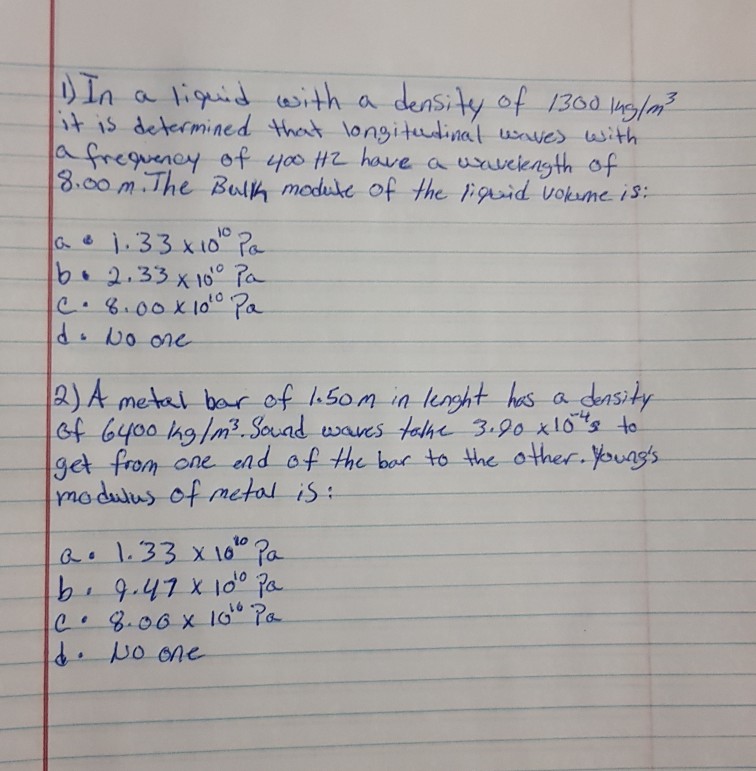 1) In a liquid with a density of 1300 kg/m³
it is determined that longitudinal waves with
a frequency of 400 HZ have a wavelength of
8.00 m. The Bulk module of the liquid volume is:
a • 1.33 x 10¹⁰ Pa
b • 2.33 x 10¹⁰ Pa
c • 8.00 x 10¹⁰ Pa
d • No one
2) A metal bar of 1.50 m in lenght has a density
of 6400 kg/m³. Sound waves take 3.90 x 10⁻⁴s to
get from one end of the bar to the other. Young's
modulus of metal is:
a • 1.33 x 10¹⁰ Pa
b • 9.47 x 10¹⁰ Pa
c • 8.00 x 10¹⁰ Pa
d • No one